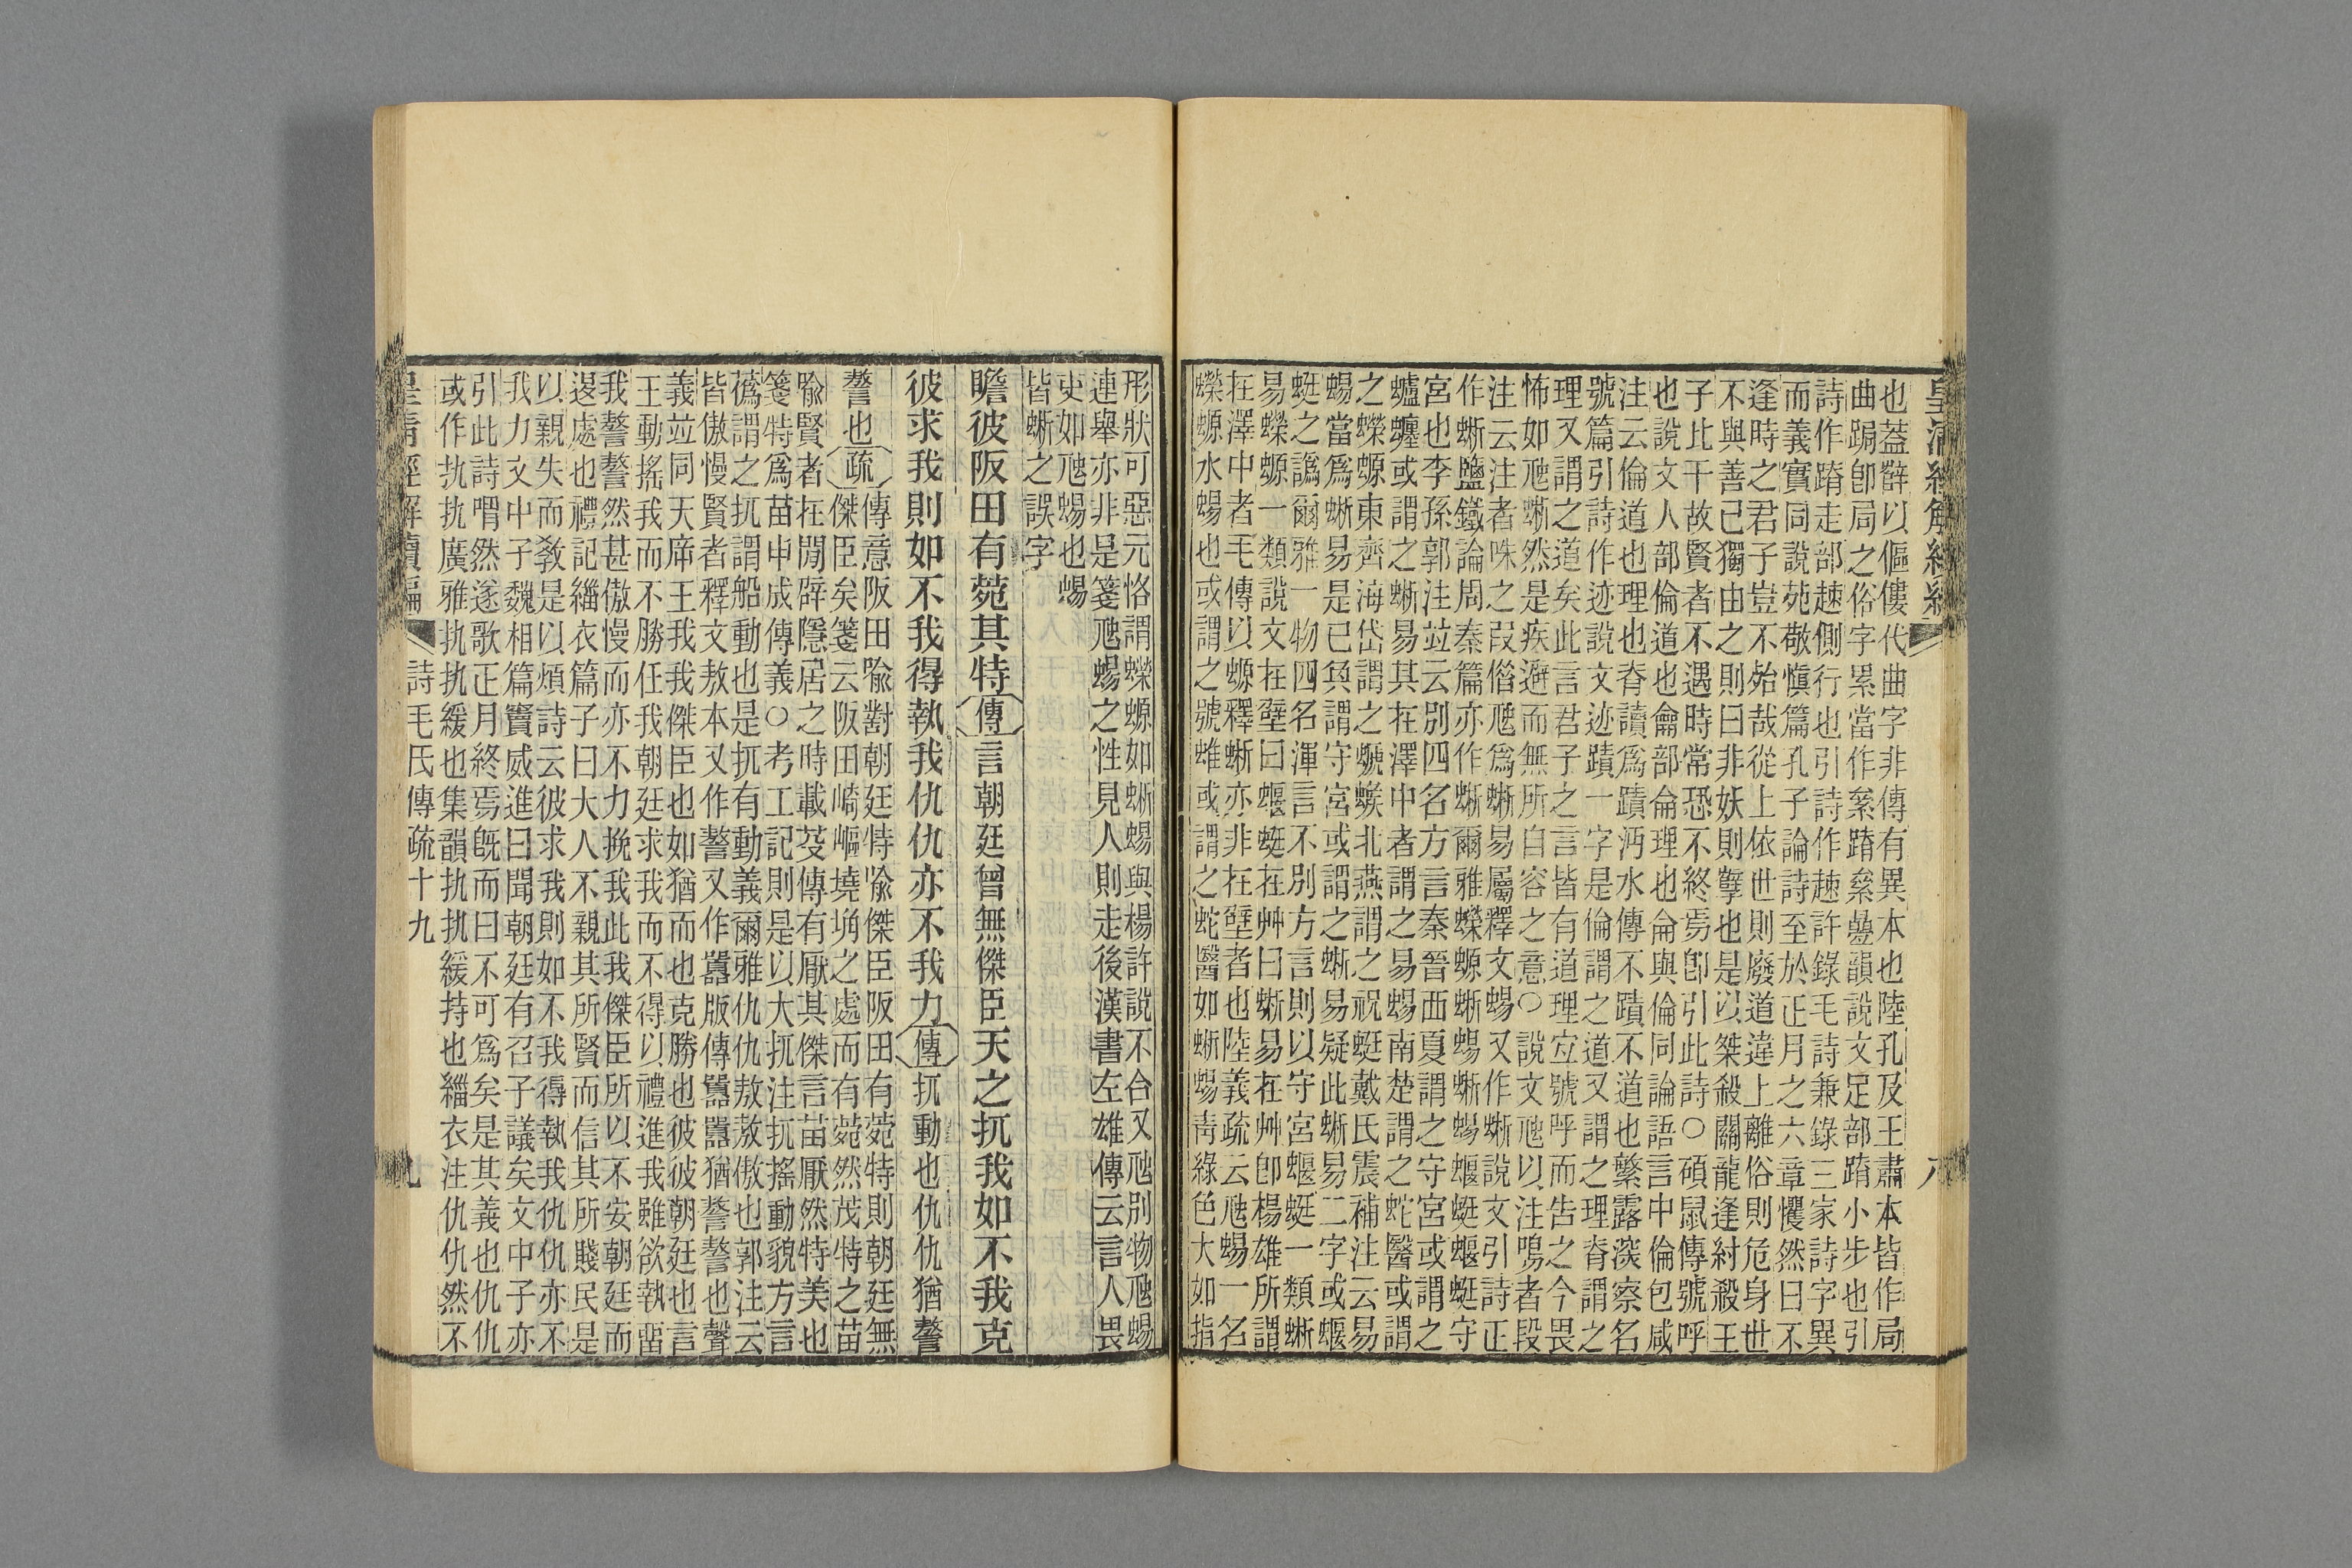 皇清經解續編
八
也蓋辭以傴僂代曲字非傳有異本也陸孔及王肅本皆作局
曲跼卽局之俗字累當作絫蹐絫曡韻說文足部蹐小步也引
詩作蹐走部趚側行也引詩作趚許錄毛詩兼錄三家詩字異
而義實同說苑敬愼篇孔子論詩至於正月之六章懼然曰不
逢時之君子豈不殆哉從上依世則廢道違上離俗則危身世
不與善己獨由之則曰非妖則孼也是以桀殺關龍逢紂殺王
子比干故賢者不遇時常恐不終焉卽引此詩○碩鼠傳號呼
也說文人部倫道也龠部侖理也侖與倫同論語言中倫包咸
注云倫道也理也脊讀爲蹟沔水傳不蹟不道也繁露深察名
號篇引詩作迹說文迹蹟一字是倫謂之道又謂之理脊謂之
理又謂之道矣此言君子之言皆有道理宐號呼而告之今畏
怖如虺蜥然是疾遯而無所自容之意○說文虺以注鳴者段
注云注者咮之叚僭虺爲蜥易屬釋文蜴又作蜥說文引詩正
作蜥鹽鐵論周秦篇亦作蜥爾雅蠑螈蜥蜴蜥蜴蝘蜓蝘蜓守
宮也李孫郭注竝云別四名方言秦晉西夏謂之守宮或謂之
蠦蠪或謂之蜥易其在澤中者謂之易蜴南楚謂之蛇醫或謂
之蠑螈東齊海岱謂之螔䗔北燕謂之祝蜓戴氏震補注云易
蜴當爲蜥易是已奐謂守宮或謂之蜥易疑此蜥易二字或蝘
蜓之譌爾雅一物四名渾言不別方言則以守宮蝘蜓一類蜥
易蠑螈一類說文在壁曰蝘蜓在艸曰蜥易在艸卽楊雄所謂
在澤中者毛傳以螈釋蜥亦非在壁者也陸義疏云虺蜴一名
蠑螈水蜴也或謂之號蜼或謂之蛇醫如蜥蜴靑綠色大如指
形狀可惡元恪謂蠑螈如蜥蜴與楊許說不合又虺別物虺蜴
連舉亦非是箋虺蜴之性見人則走後漢書左雄傳云言人畏
吏如虺蜴也蜴
皆蜥之誤字
瞻彼阪田有菀其特傳言朝廷曾無傑臣天之扤我如不我克
彼求我則如不我得執我仇仇亦不我力傳扤動也仇仇猶謷
謷也疏傳意阪田喻對朝廷特喻傑臣阪田有菀特則朝廷無
傑臣矣箋云阪田崎嶇墝埆之處而有菀然茂特之苗
喻賢者在閒辟隱居之時載芟傳有厭其傑言苗厭然特美也
箋特爲苗申成傳義○考工記則是以大扤注扤搖動貌方言
僞謂之扤謂船動也是扤有動義爾雅仇仇敖敖傲也郭注云
皆傲慢賢者釋文敖本又作謷又作嚻版傳嚻嚻猶謷謷也聲
義竝同天席王我我傑臣也如猶而也克勝也彼彼朝廷也言
王動搖我而不勝任我朝廷求我而不得以禮進我雖欲執畱
我謷謷然甚傲慢而亦不力挽我此我傑臣所以不安朝廷而
退處也禮記緇衣篇子曰大人不親其所賢而信其所賤民是
以親失而敎是以煩詩云彼求我則如不我得執我仇仇亦不
我力文中子魏相篇竇威進曰聞朝廷有召子議矣文中子亦
引此詩喟然遂歌正月終焉旣而曰不可爲矣是其義也仇仇
或作㧁㧁廣雅㧁㧁緩也集韻㧁㧁緩持也緇衣注仇仇然不
皇淸經解續編
詩毛氏傳疏十九
九